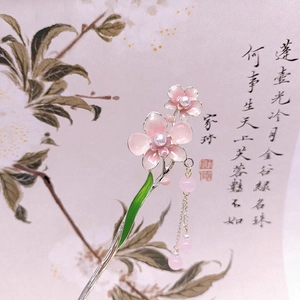 蓬壺光冷月金谷絲名珠
何事生天上芙蓉難不如
家珍